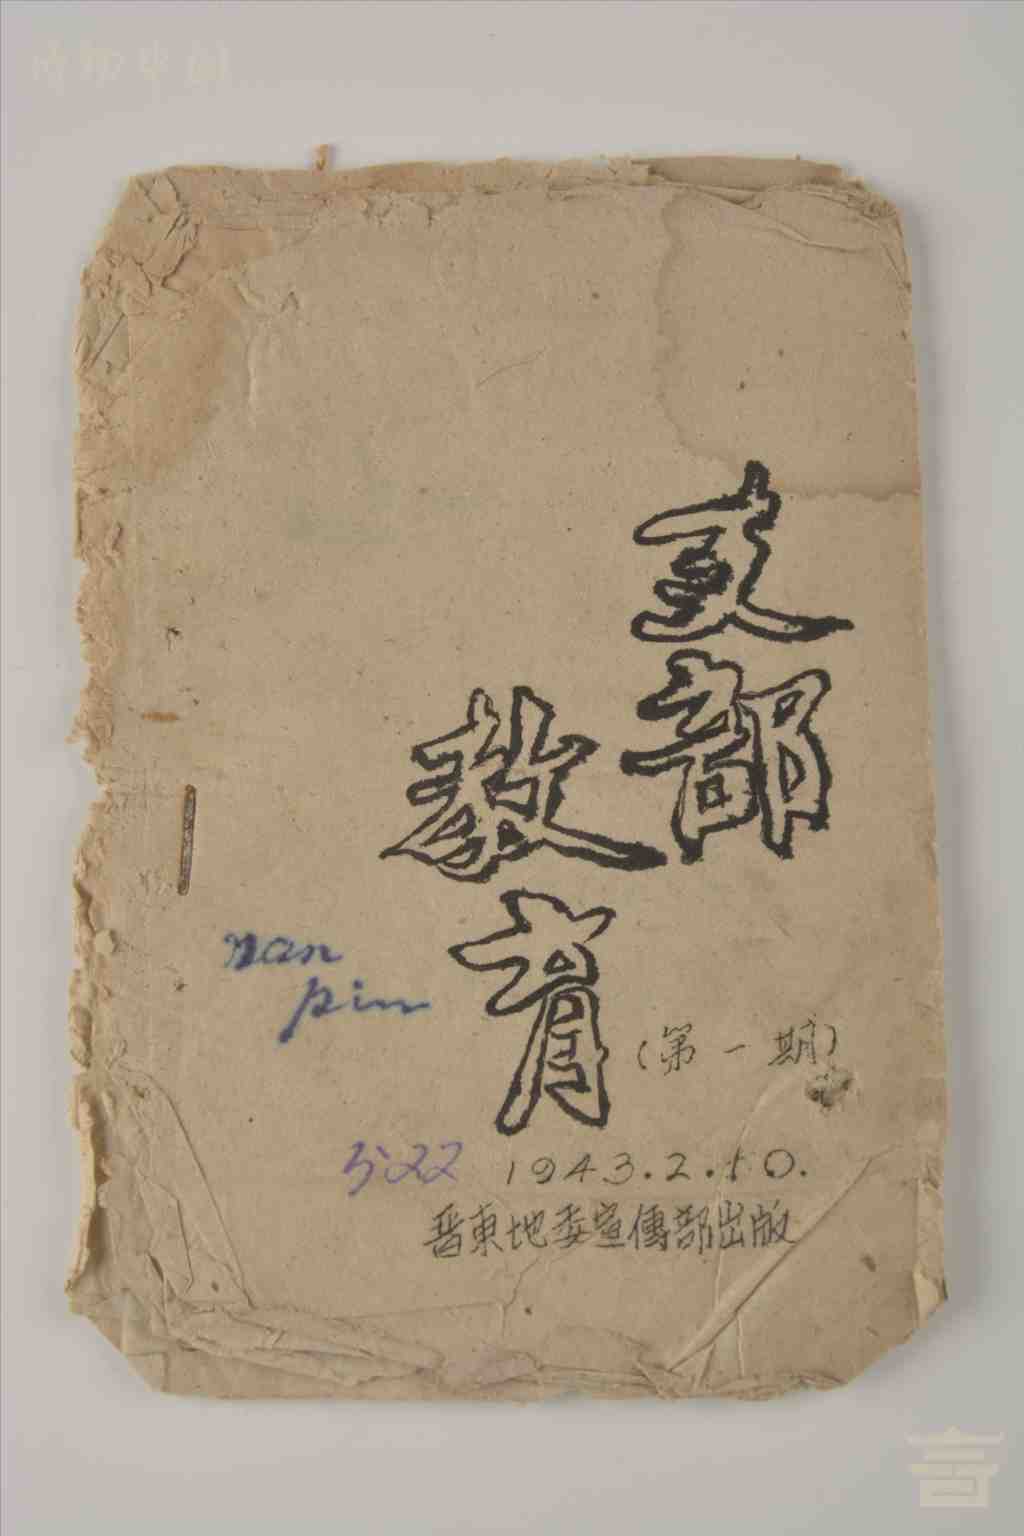 支部
教育
(第一期)
nan
pin
1943.2.10.
晋東地委宣傳部出版